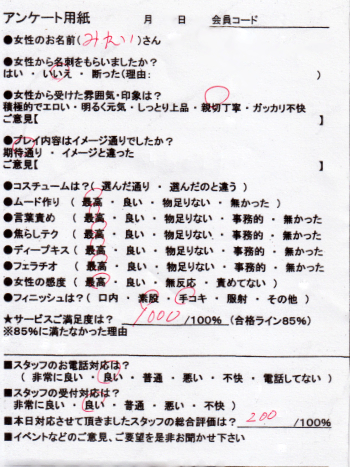 アンケート用紙　月　日　会員コード
●女性のお名前(みれい)さん
●女性から名刺をもらいましたか?
はい ・ いいえ ・ 断った(理由:　)
●女性から受けた雰囲気・印象は?
積極的でエロい・明るく元気・しっとり上品・親切丁寧・ガッカリ不快
ご意見【　】
●プレイ内容はイメージ通りでしたか?
期待通り ・ イメージと違った
ご意見【　】
●コスチュームは?( 選んだ通り ・ 選んだのと違う )
●ムード作り ( 最高 ・ 良い ・ 物足りない ・ 無かった )
●言葉責め ( 最高 ・ 良い ・ 物足りない ・ 事務的 ・ 無かった
●焦らしテク ( 最高 ・ 良い ・ 物足りない ・ 事務的 ・ 無かった
●ディープキス ( 最高 ・ 良い ・ 物足りない ・ 事務的 ・ 無かった
●フェラチオ ( 最高 ・ 良い ・ 物足りない ・ 事務的 ・ 無かった
●女性の感度 ( 最高 ・ 良い ・ 無反応 ・ 責めてない )
●フィニッシュは?( 口内 ・ 素股 ・ 手コキ ・ 服射 ・ その他 )
★サービスご満足度は? 1000 /100% (合格ライン85%)
※85%に満たなかった理由
■スタッフのお電話対応は?
( 非常に良い ・ 良い ・ 普通 ・ 悪い ・ 不快 ・ 電話してない )
■スタッフの受付対応は?
非常に良い ・ 良い ・ 普通 ・ 悪い ・ 不快 )
■本日対応させて頂きましたスタッフの総合評価は? 200 /100%
■イベントなどのご意見、ご要望を是非お聞かせ下さい